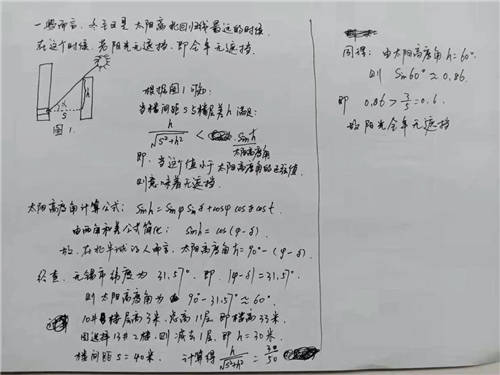 一般而言，冬至日是太阳离北回归线最远的时候
在这个时候，若阳光无遮挡，即全年无遮挡.
h
S
图1.
根据图1可知：
当楼间距S与楼层差h满足：
h/√(S²+h²) < sin h
太阳高度角
即，当这个值小于太阳高度角的正弦值，
则意味着无遮挡.
太阳高度角计算公式：Sin h = Sinφ Sinδ + cosφ cosδ cos t.
由两角和差公式简化： Sin h = cos(φ-δ)
故，在北半球的人而言，太阳高度角h=90°-(φ-δ)
经查，无锡市纬度为 31.57°. 即 |φ-δ|=31.57°.
则太阳高度角为 90°-31.57° ≈ 60°.
10# 楼层高3米，总高11层，即楼高33米.
因选择13# 2楼，则减去1层，即h=30米
楼间距S=40米. 计算得 h/√(S²+h²) = 30/50
同得：由太阳高度角h=60°
则 Sin60° ≈ 0.86
即 0.86 > 3/5 = 0.6.
故阳光全年无遮挡